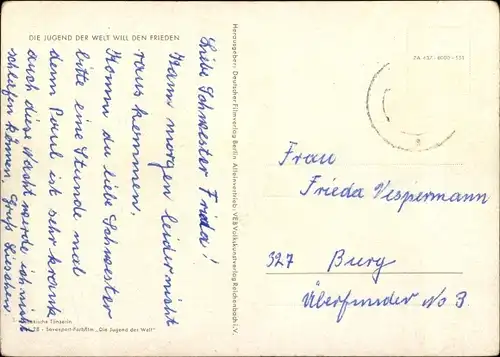 DIE JUGEND DER WELT WILL DEN FRIEDEN
Liebe Schwester Frida!
Kann morgen leider nicht
raus kommen.
Komm du liebe Schwester
bitte eine Stunde mal
denn Paul ist sehr krank
auch diese Nacht werde ich nicht
schlafen können. Gruß Lieschen
Tänzerin
Sovexport-Farbfilm „Die Jugend der Welt"
Herausgeber: Deutscher Filmverlag Berlin Alleinvertrieb: VEB Volkskunstverlag Reichenbach i.V.
Frau
Frieda Vespermann
327 Burg
Überfunder No 3.